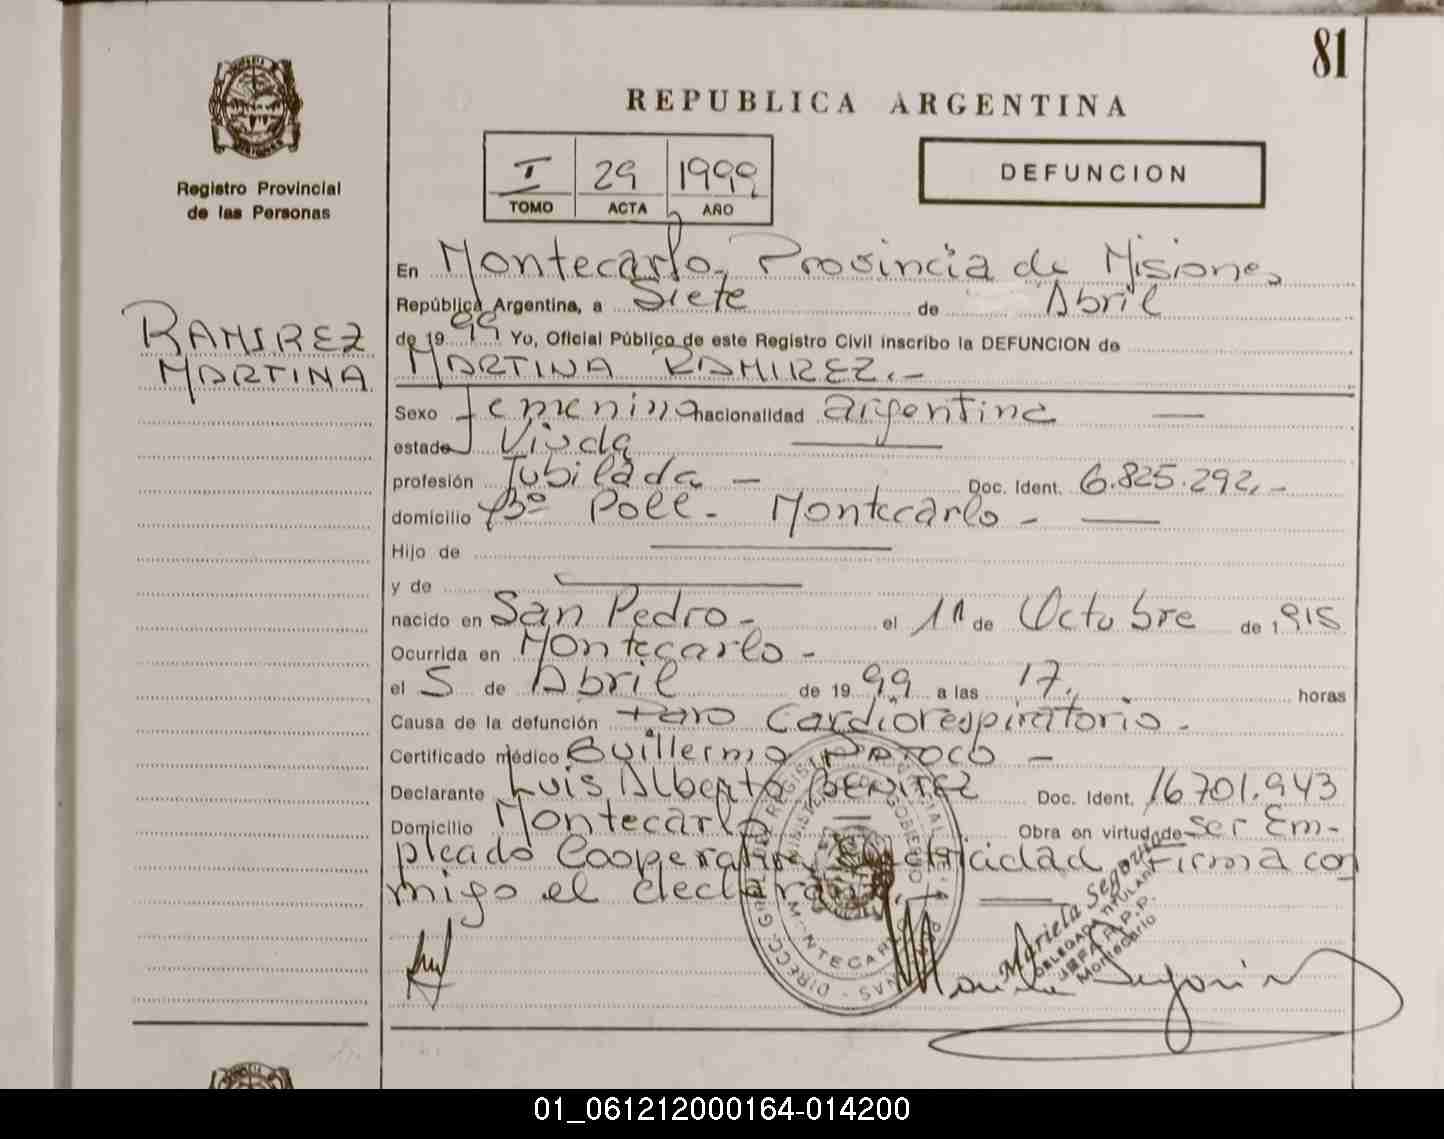 81
REPUBLICA ARGENTINA
Registro Provincial
de las Personas
I 29 1999
TOMO ACTA AÑO
DEFUNCION
RAMIREZ
MARTINA
En Montecarlo, Provincia de Misiones
República Argentina, a Siete de Abril
de 19 99 Yo, Oficial Público de este Registro Civil inscribo la DEFUNCION de
MARTINA RAMIREZ.-
Sexo Femenino nacionalidad argentina —
estado Viuda —
profesión Jubilada — Doc. Ident. 6.825.292.-
domicilio Bº Poll - Montecarlo - —
Hijo de —
y de —
nacido en San Pedro - el 11 de Octubre de 1915
Ocurrida en Montecarlo -
el 5 de Abril de 19 99 a las 17, horas
Causa de la defunción Paro Cardiorespiratorio -
Certificado médico Guillermo —
Declarante Luis Alberto BENITEZ Doc. Ident. 16701.943
Domicilio Montecarlo — Obra en virtud de Ser Em-
pleado Cooperativa Electricidad Firma con
migo el declarante. —
Mariela Segovia
DELEGADA TITULAR
Montecarlo
01_061212000164-014200